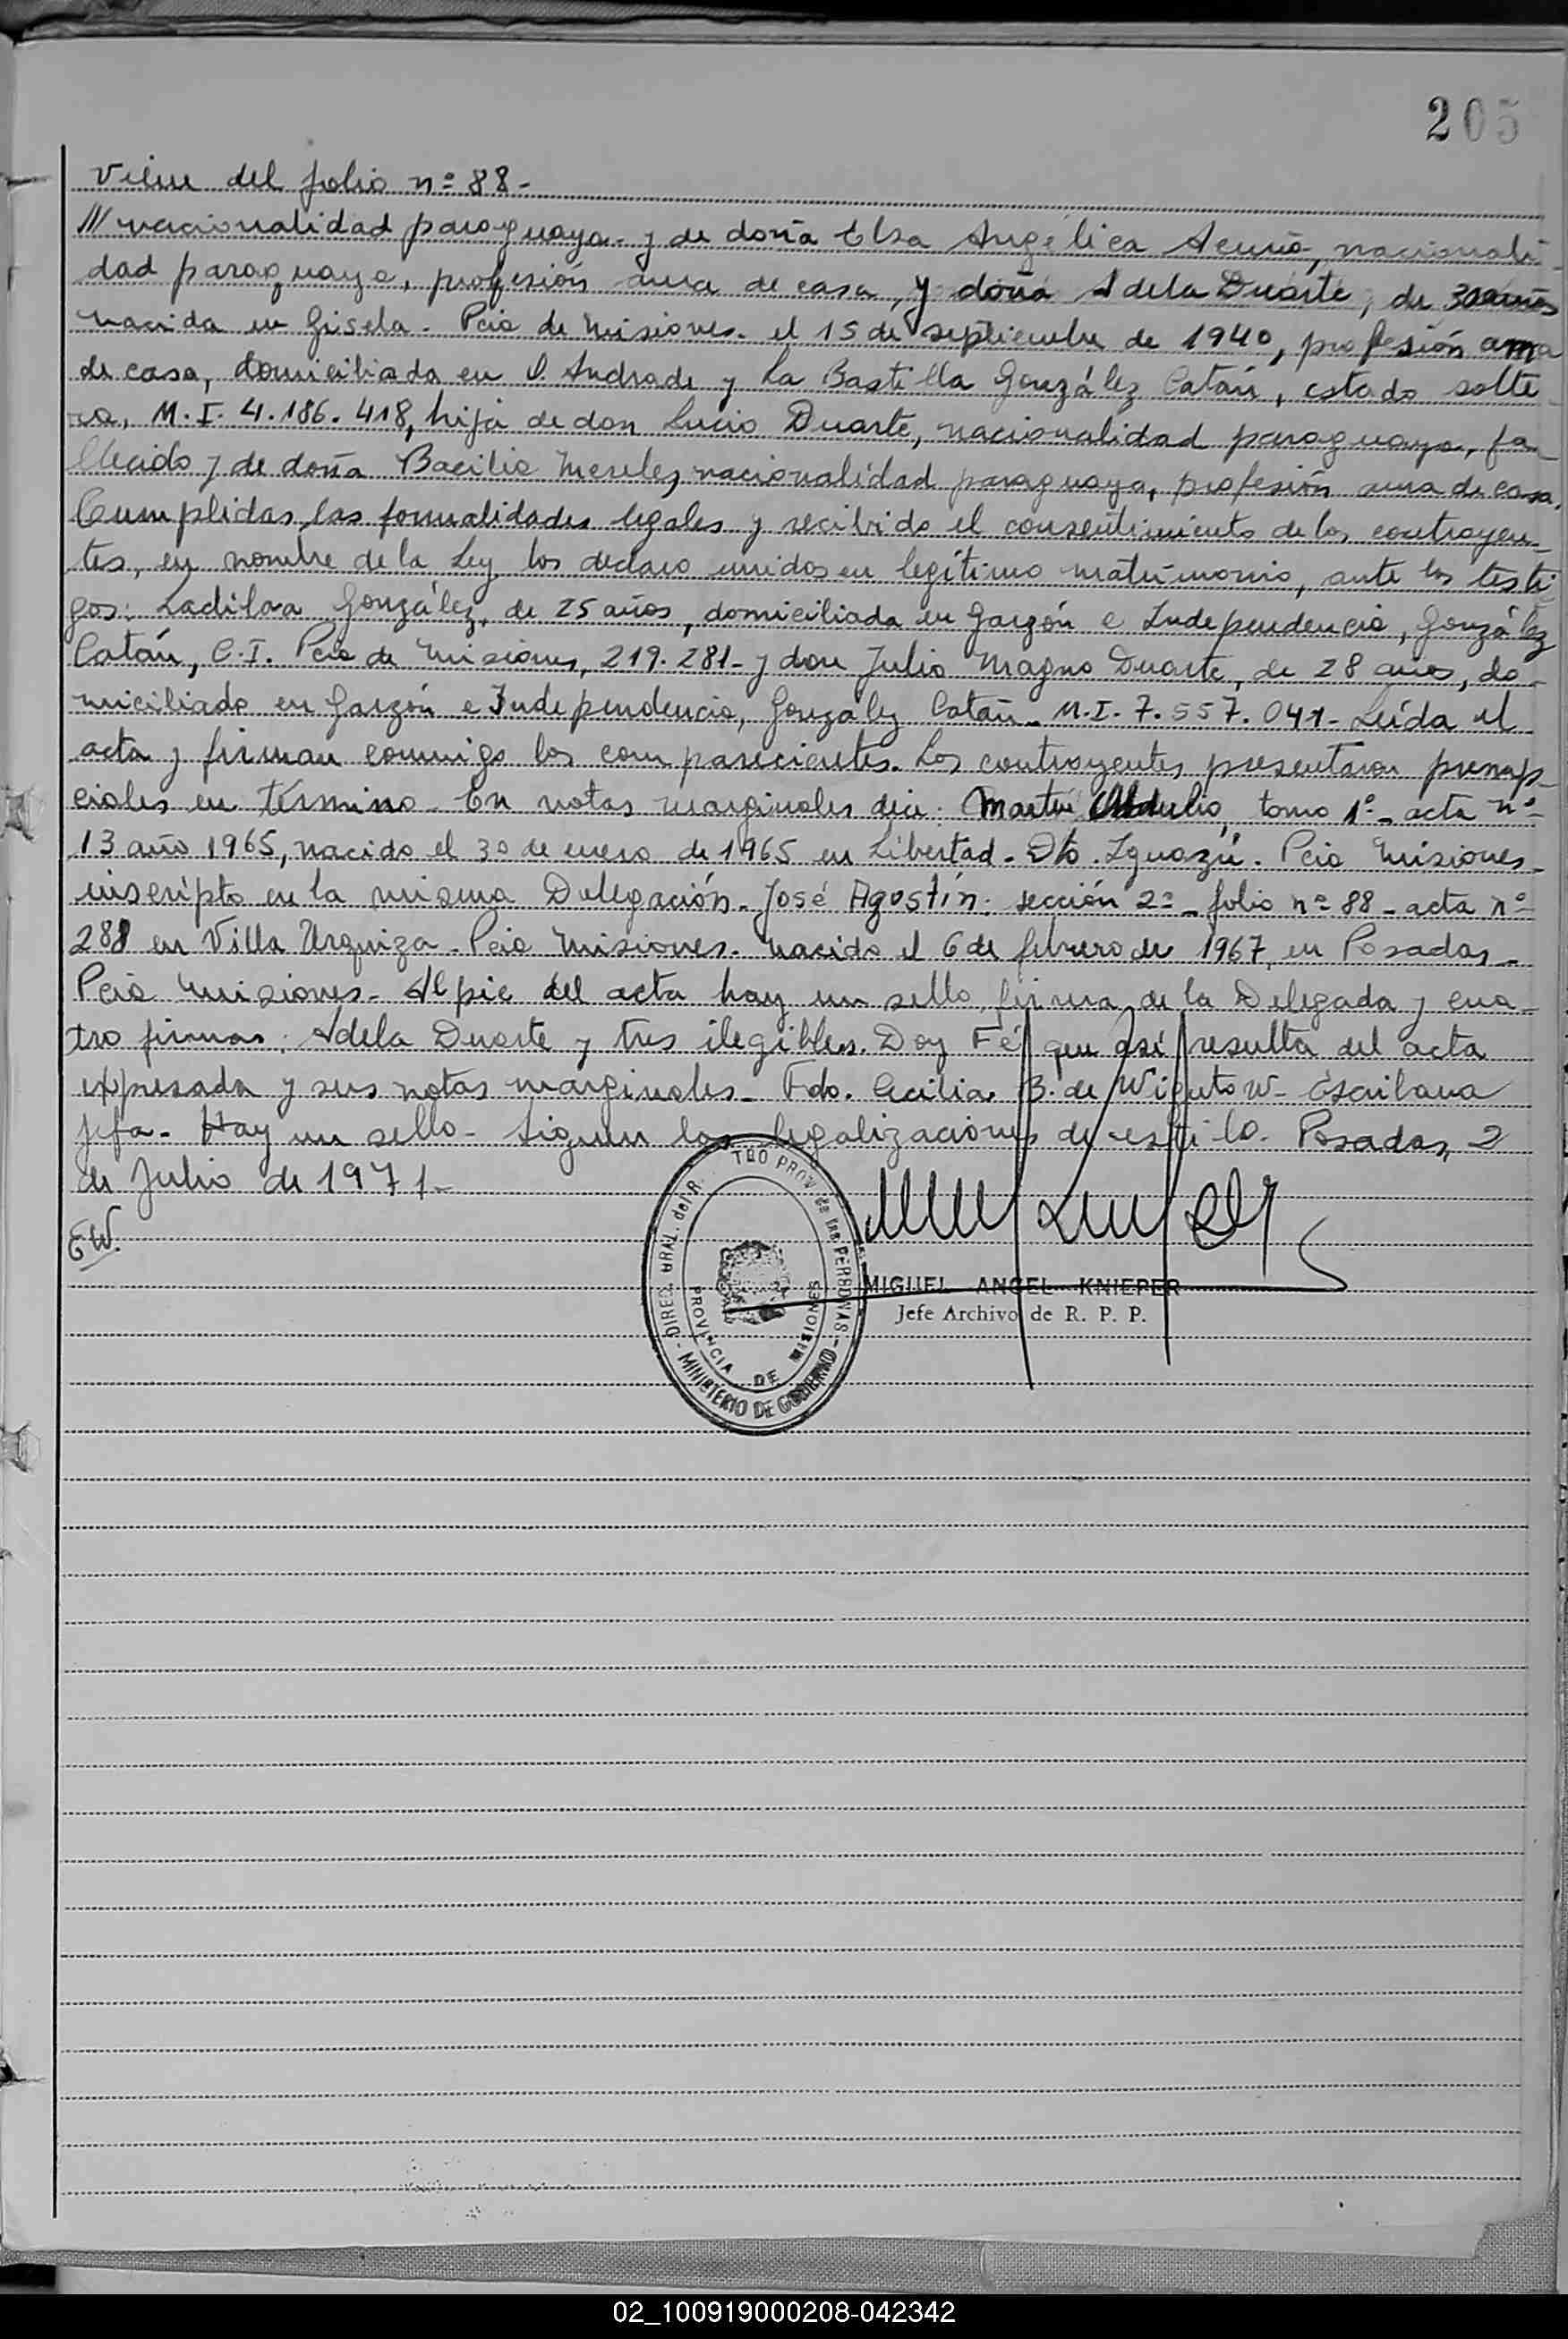 205
Viene del folio nº 88-
/// nacionalidad paraguaya- y de doña Elsa Angélica Acuña, nacionali-
dad paraguaya, profesión ama de casa, y doña Adela Duarte, de 30 años
nacida en Gisela- Pcia de Misiones- el 15 de septiembre de 1940, profesión ama
de casa, domiciliada en O. Andrade y La Bastilla González Catán, estado solte-
ra, M.I. 4.186.418, hija de don Lucio Duarte, nacionalidad paraguaya, fa-
llecido y de doña Bacilia Mereles, nacionalidad paraguaya, profesión ama de casa.
Cumplidas las formalidades legales y recibido el consentimiento de los contrayen-
tes, en nombre de la Ley los declaro unidos en legítimo matrimonio, ante los testi
gos: Ladilaa González, de 25 años, domiciliada en Garzón e Independencia, González
Catán, C.I. Pcia de Misiones, 219.281- y don Julio Magno Duarte, de 28 años, do-
miciliado en Garzón e Independencia, González Catán- M.I. 7.557.041- Leída el
acta y firman conmigo los comparecientes. Los contrayentes presentaron prenup-
ciales en término- En notas marginales dice: Martín tomo 1º- acta nº
13 año 1965, nacido el 30 de enero de 1965 en Libertad- Dto. Iguazú- Pcia Misiones-
inscripto en la misma Delegación- José Agostín: sección 2ª- folio nº 88- acta nº
288 en Villa Urquiza- Pcia Misiones- nacido el 6 de febrero de 1967, en Posadas-
Pcia Misiones- Al pie del acta hay un sello, firma de la Delegada y cua-
tro firmas: Adela Duarte y tres ilegibles. Doy Fé que así resulta del acta
expresada y sus notas marginales- Fdo. Cecilia B. de Escribana
jefa- Hay un sello- Siguen las legalizaciones de estilo- Posadas, 2
de Julio de 1971-
EW.
DIREC. GRAL. del R. TRO PROV de las PERSONAS - MINISTERIO DE GOBIERNO -
PROVINCIA DE MISIONES
MIGUEL ANGEL KNIEPER
Jefe Archivo de R. P. P.
02_100919000208-042342